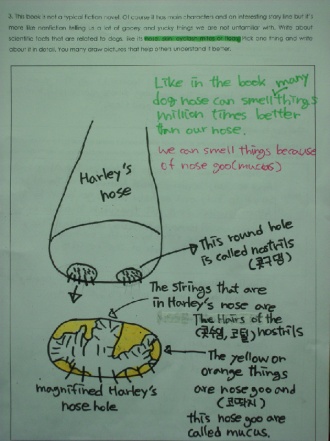 3. This book is not a typical fiction novel. Of course it has main characters and an interesting story line but it's
more like nonfiction telling us a lot of gooey, and yucky things we are not unfamiliar with. Write about
scientific facts that are related to dogs, like its Pick one thing and write
about it in detail. You many draw pictures that help others understand it better.
Like in the book many
dog nose can smell things
million times better
than our nose.
we can smell things because
of nose goo(mucus)
Harley's
nose
This round hole
is called nostrils
(콧구멍)
The strings that are
in Harley's nose are
The Hairs of the
(콧수염, 코털) nostrils
The yellow or
orange things
are nose goo and
(코딱지)
this nose goo are
called mucus.
magnifined Harley's
nose hole